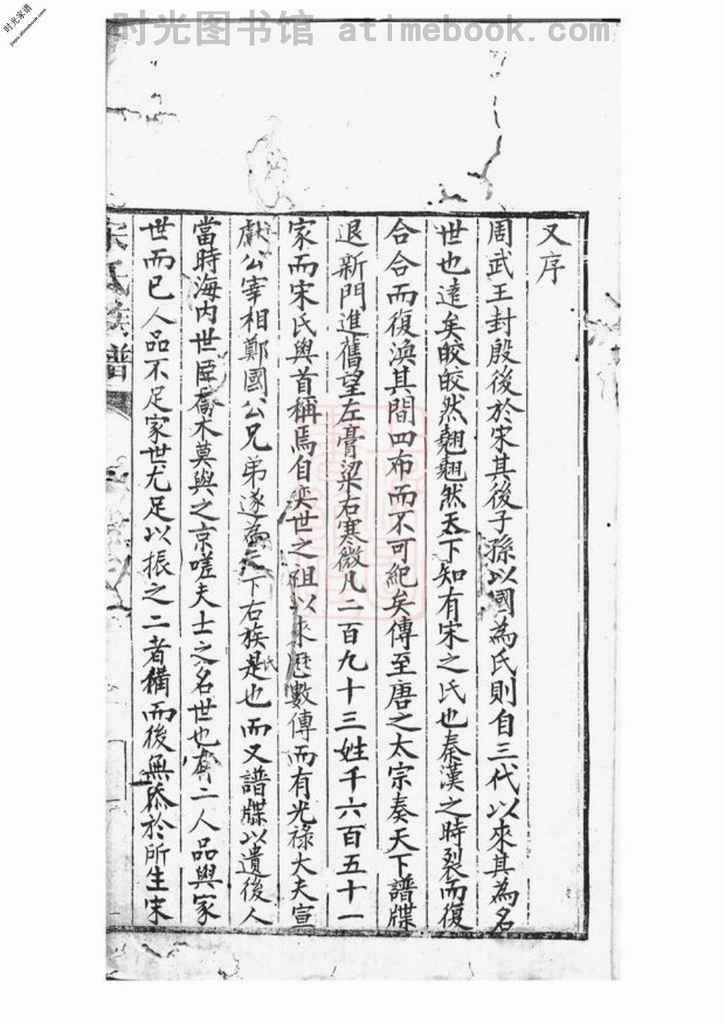 时光家谱
时光图书馆 atimebook.com
又序
周武王封殷後於宋其後子孫以國為氏則自三代以來其為名
世也遠矣皎皎然翹翹然天下知有宋之氏也秦漢之時裂而復
合合而復渙其間四布而不可紀矣傳至唐之太宗奏天下譜牒
退新門進舊望左膏粱右寒微凡二百九十三姓千六百五十一
家而宋氏與首稱焉自奕世之祖以來歷數傳而有光祿大夫宣
獻公宰相鄭國公兄弟遂為天下右族氏是也而又譜牒以遺後人
當時海內世臣喬木莫與之京嗟夫士之名世也有二人品與家
世而已人品不足家世尤足以振之二者備而後無忝於所生宋
宋氏族譜